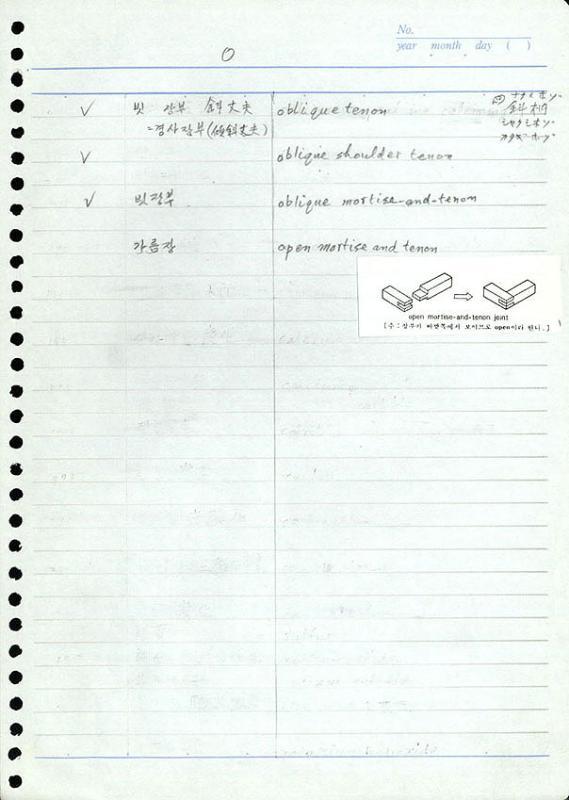 No.
year month day ( )
O
✓ 빗 장부 斜丈夫 oblique tenon
=경사장부(傾斜丈夫)
✓ oblique shoulder tenon
✓ 빗장부 oblique mortise-and-tenon
가름장 open mortise and tenon
open mortise-and-tenon joint
[주:장부가 바깥쪽에서 보이므로 open이라 한다.]